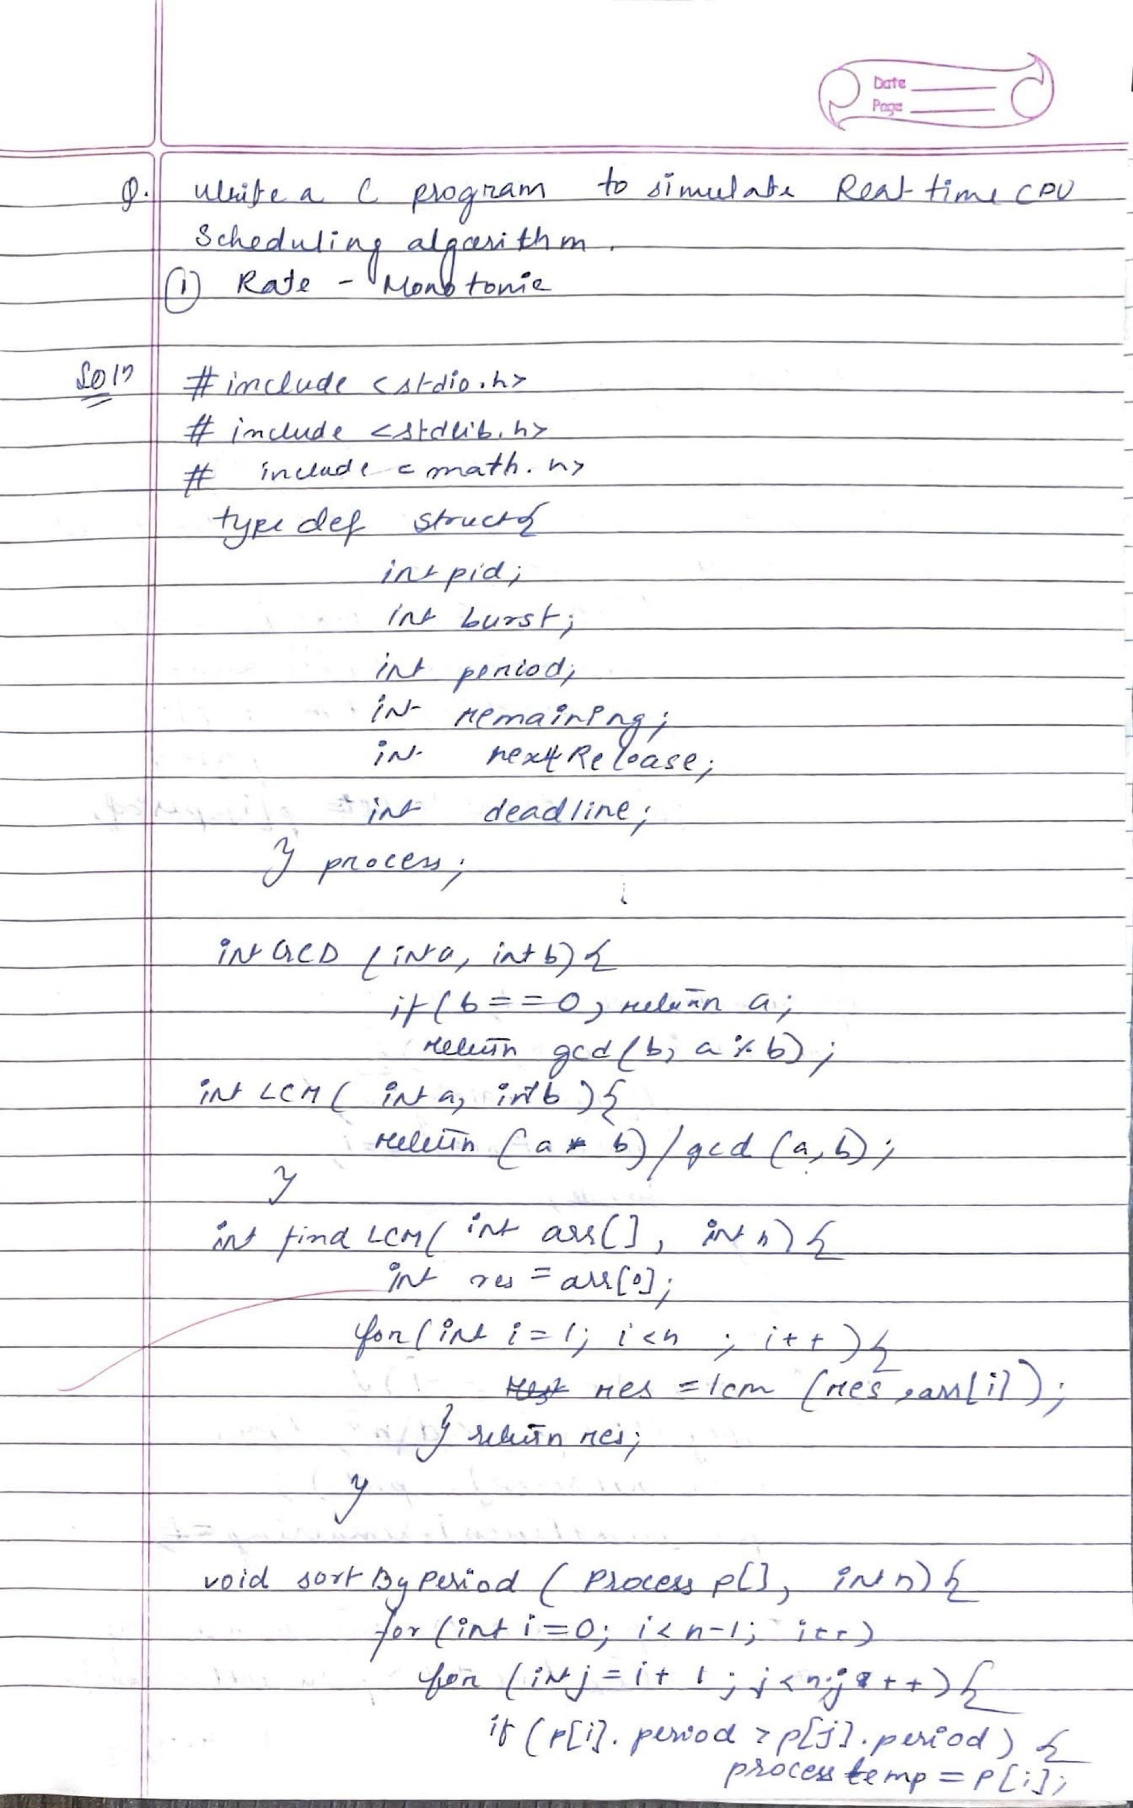 Date
Page
Q. Write a C program to simulate Real time CPU
Scheduling algorithm.
① Rate - Monotonic
Soln
#include <stdio.h>
# include <stdlib.h>
# include <math.h>
typedef struct{
int pid;
int burst;
int period;
int remaining;
int nextRelease;
int deadline;
} process;
int GCD (int a, int b) {
if (b == 0) return a;
return gcd (b, a % b);
int LCM ( int a, int b ) {
return (a * b) / gcd (a, b);
}
int find LCM( int arr[], int n) {
int res = arr[0];
for (int i = 1; i < n ; i++) {
res = lcm (res, arr[i]);
} return res;
}
void sort By Period ( Process p[], int n) {
for (int i = 0; i < n-1; i++)
for (int j = i + 1; j < n; j++) {
if (p[i]. period > p[j]. period) {
process temp = p[i];